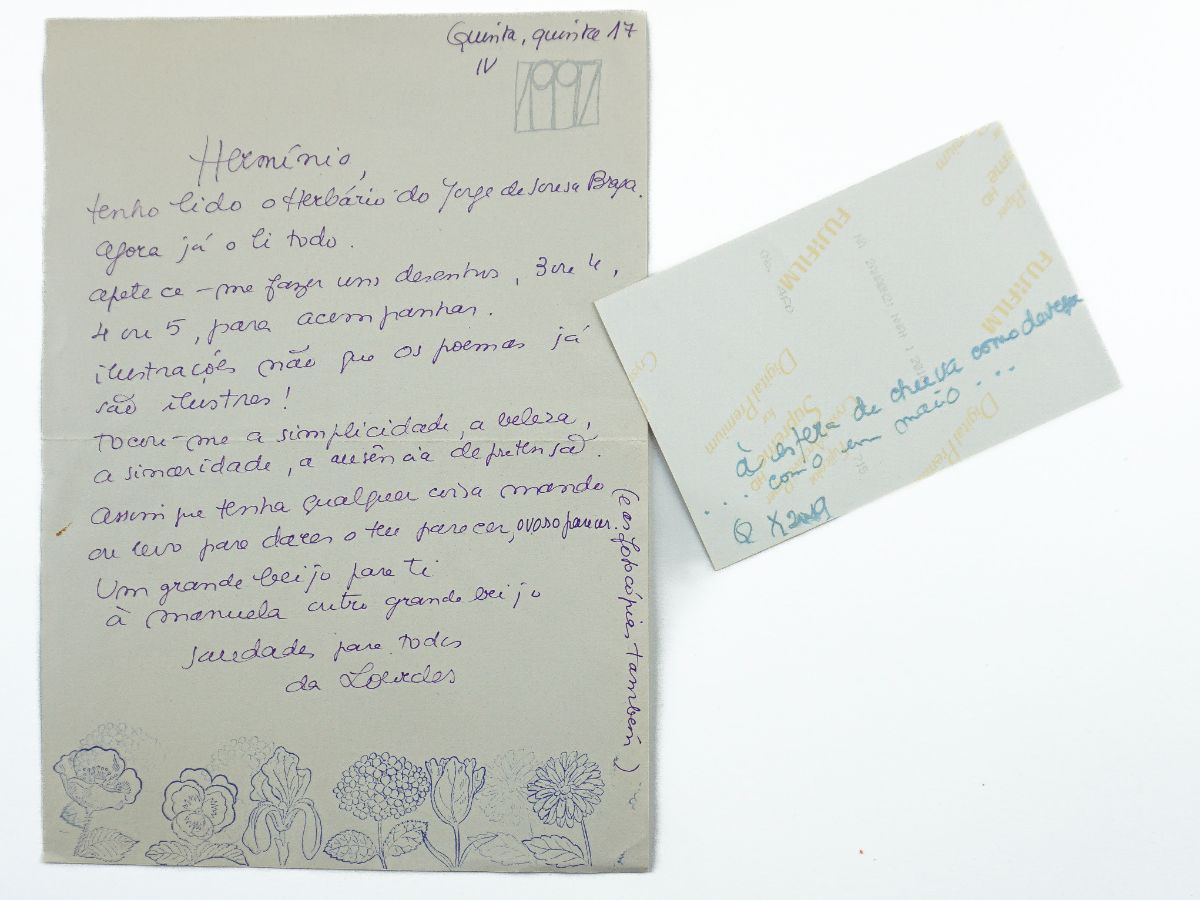 Quinta, quinta 17
IV
1997
Hermínio,
tenho lido o Herbário do Jorge de Sousa Braga.
agora já o li todo.
apetece-me fazer uns desenhos, 3 ou 4,
4 ou 5, para acompanhar.
ilustrações não que os poemas já
são ilustres!
tocou-me a simplicidade, a beleza,
a sinceridade, a ausência de pretensão.
assim que tenha qualquer coisa mando
ou levo para dares o teu parecer, o vosso parecer.
(e as fotocópias também)
Um grande beijo para ti
à manuela outro grande beijo
saudades para todos
da Lourdes
FUJIFILM
FUJIFILM
Digital Premium
Digital Premium
à espera de chuva como devesa
... como em maio ...
Q X 2019